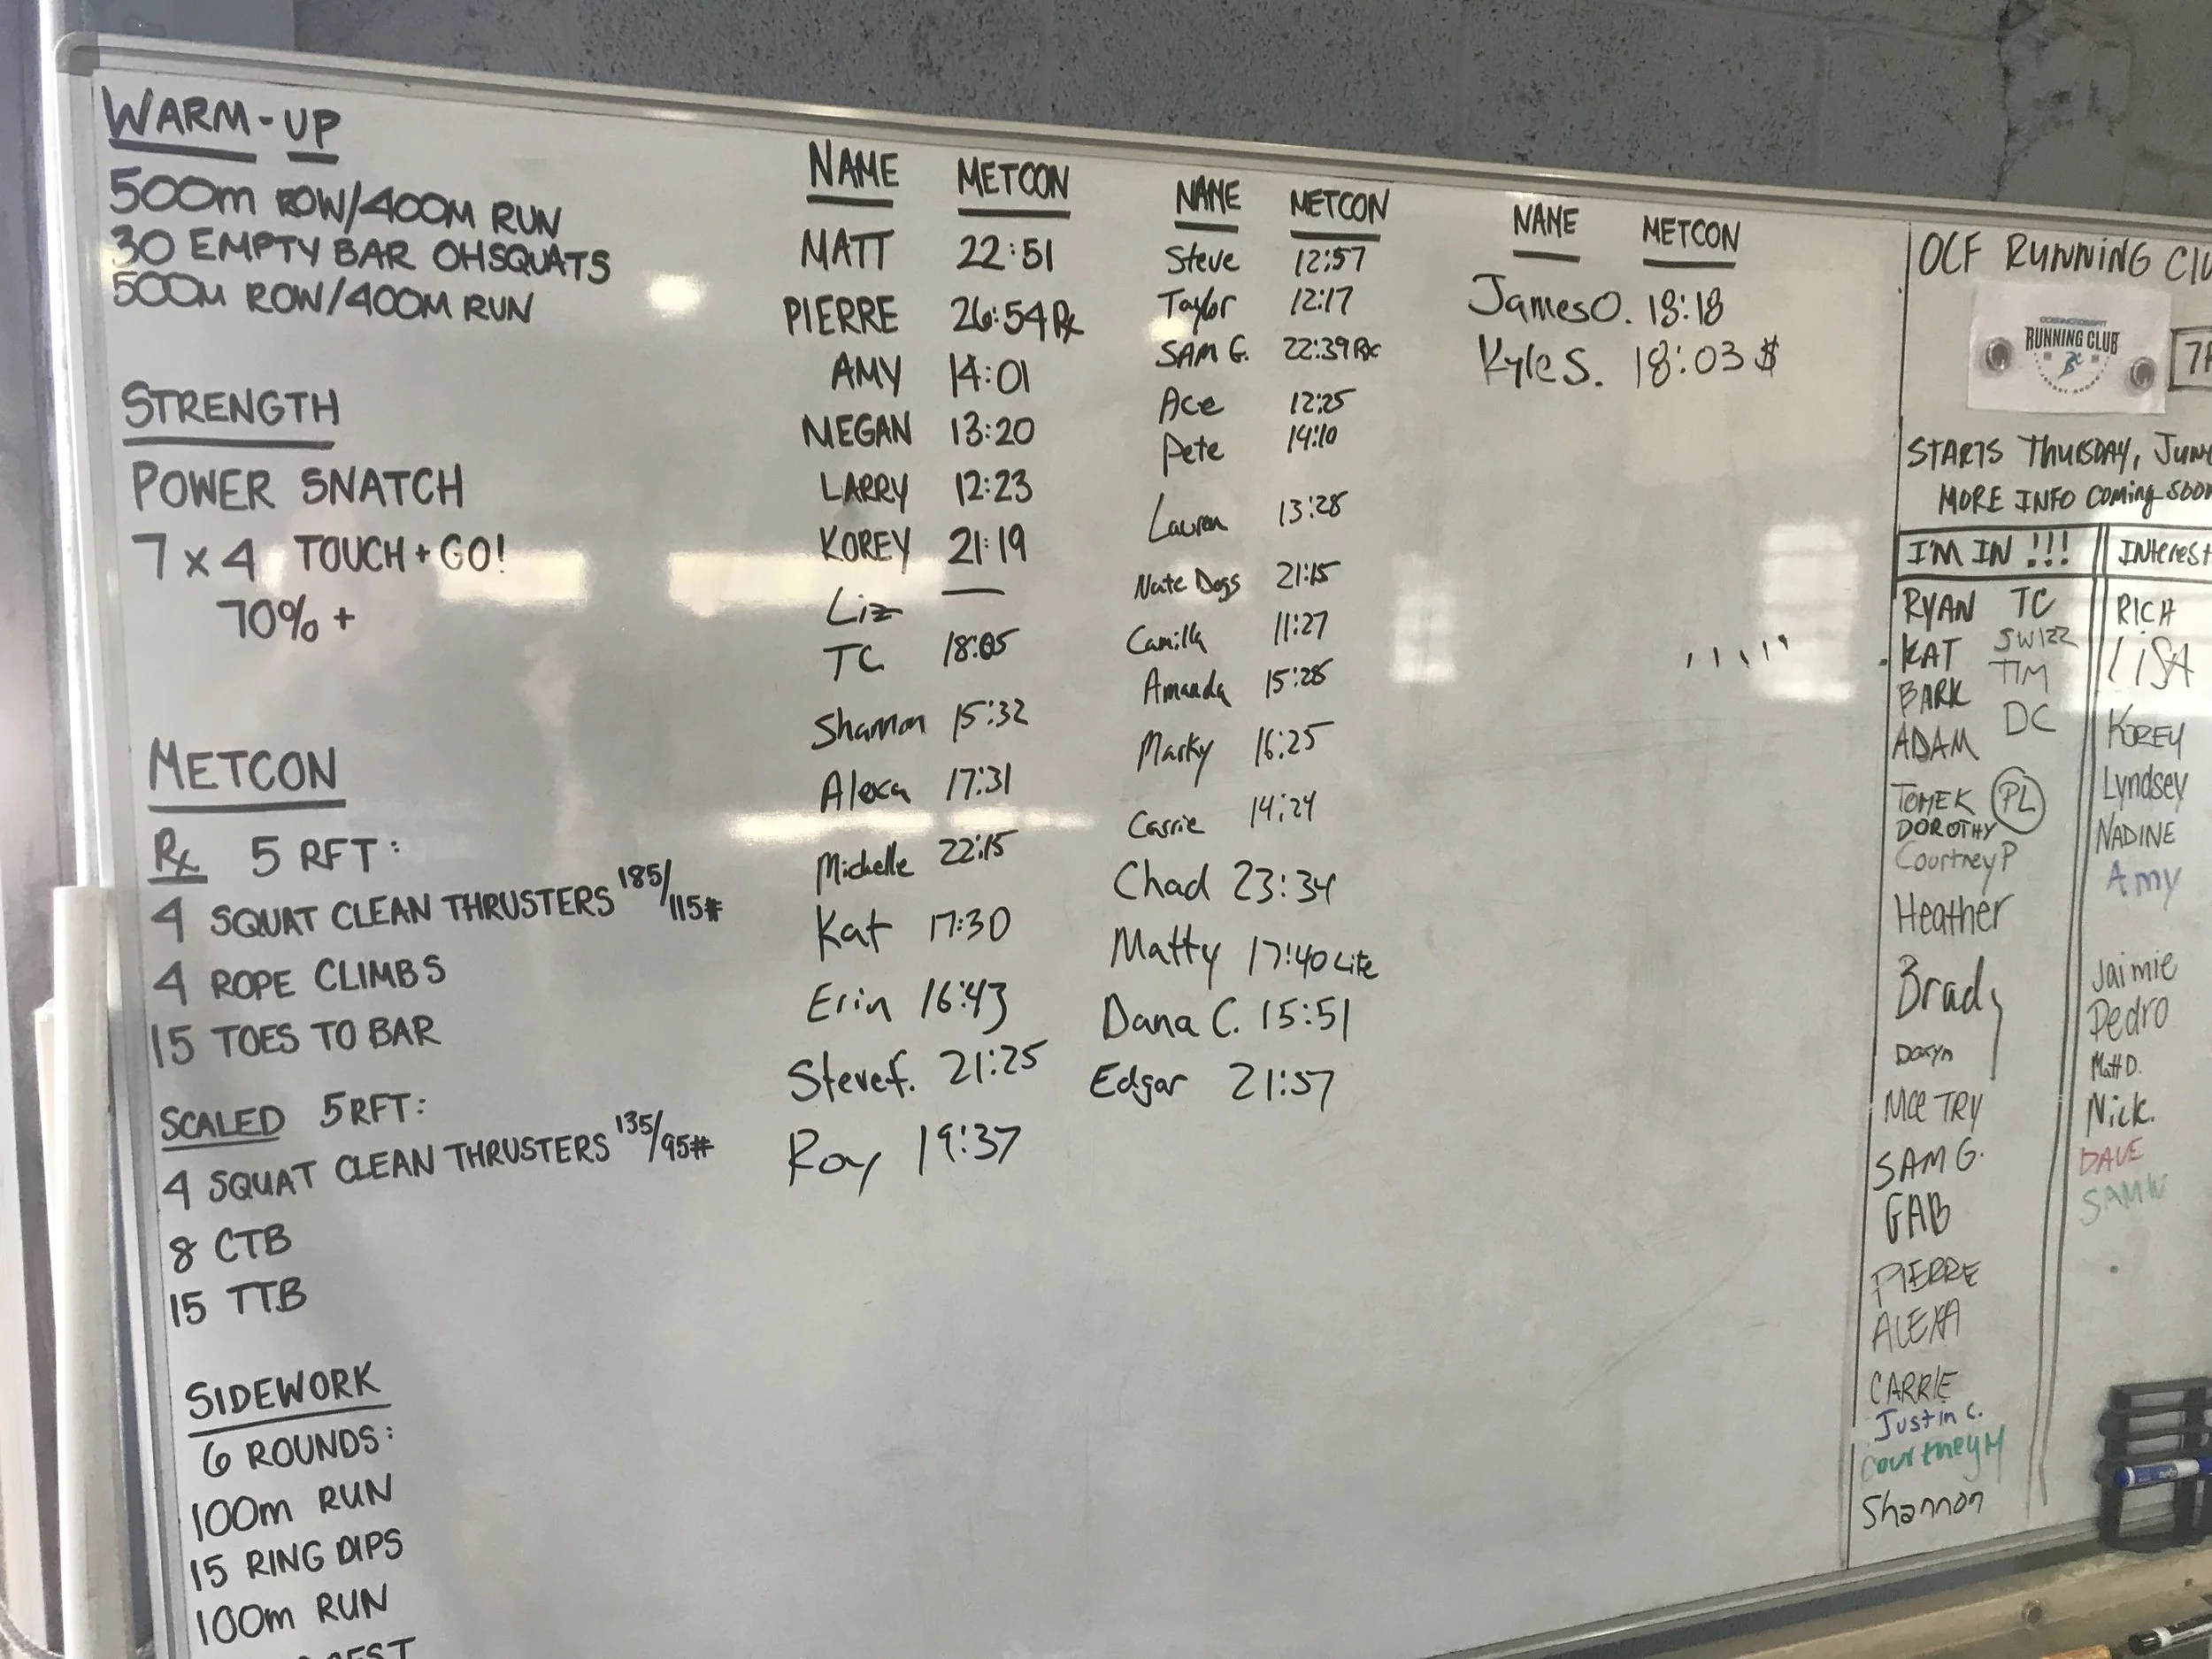 WARM-UP
500m ROW/400M RUN
30 EMPTY BAR OHSQUATS
500M ROW/400M RUN
STRENGTH
POWER SNATCH
7 x 4 TOUCH + GO!
70% +
METCON
Rx 5 RFT:
4 SQUAT CLEAN THRUSTERS 185/115#
4 ROPE CLIMBS
15 TOES TO BAR
SCALED 5 RFT:
4 SQUAT CLEAN THRUSTERS 135/95#
8 CTB
15 TTB
SIDEWORK
6 ROUNDS:
100m RUN
15 RING DIPS
100m RUN
NAME METCON
MATT 22:51
PIERRE 26:54 Rx
AMY 14:01
MEGAN 13:20
LARRY 12:23
KOREY 21:19
Liz —
TC 18:05
Shannon 15:32
Alexa 17:31
Michelle 22:15
Kat 17:30
Erin 16:43
Steve f. 21:25
Roy 19:37
NAME METCON
Steve 12:57
Taylor 12:17
SAM G. 22:39 Rx
Ace 12:25
Pete 14:10
Lauren 13:28
Nate Dogs 21:15
Camilla 11:27
Amanda 15:28
Marky 16:25
Carrie 14:24
Chad 23:34
Matty 17:40 Lite
Dana C. 15:51
Edgar 21:57
NAME METCON
James O. 18:18
Kyle S. 18:03 $
OCF RUNNING CLU
RUNNING CLUB
STARTS THURSDAY, JUN
MORE INFO Coming soon
I'M IN !!!
RYAN TC
KAT SWIZZ
BARK TIM
ADAM DC
TOMEK PL
DOROTHY
Courtney P
Heather
Brady
Daryn
SAM G.
GAB
PIERRE
ALEXA
CARRIE
Justin C.
Courtney M
Shannon
INterest
RICH
LISA
KOREY
Lyndsey
NADINE
Amy
Jaimie
Pedro
Matt D.
Nick.
DAVE
SAM W